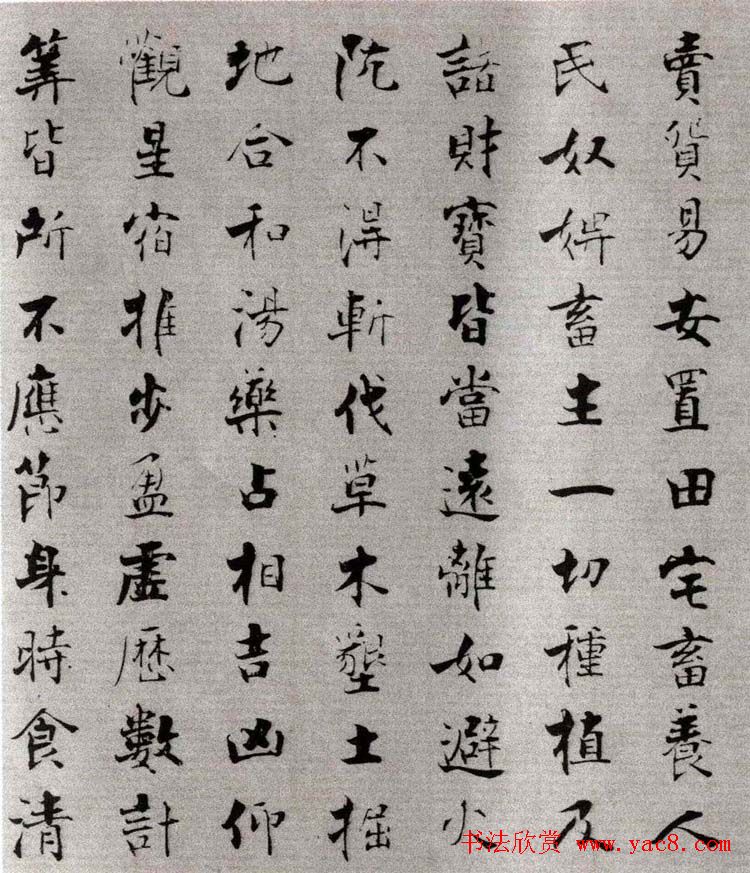 賣貿易安置田宅畜養人
民奴婢畜生一切種植及
諸財寶皆當遠離如避火
阬不得斬伐草木墾土掘
地合和湯藥占相吉凶仰
觀星宿推步盈虛歷數計
筭皆所不應節身時食清
书法欣赏 www.yac8.com